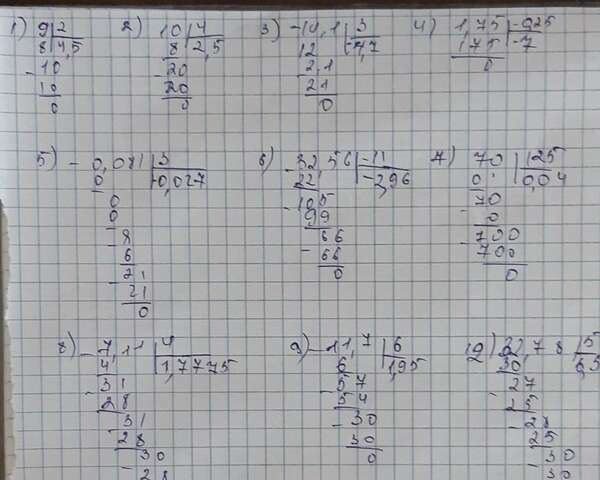 1) 9 | 2
8 4,5
- 10
10
0
2) 10 | 4
8 2,5
- 20
20
0
3) -14,1 | 3
12 -4,7
- 2,1
21
0
4) 1,75 | -0,25
175 -7
0
5) - 0,081 | 3
0 -0,027
0
0
- 8
6
- 21
21
0
6) - 32,56 | -11
22 -2,96
- 105
99
- 66
66
0
7) 70 | 125
0 0,04
- 70
0
- 700
700
0
8) - 7,11 | 4
4 1,7775
- 31
28
- 31
28
- 30
28
9) - 11,7 | 6
6 1,95
- 57
54
- 30
30
0
32,78 | 5
30
- 27
25
- 28
25
- 30
30